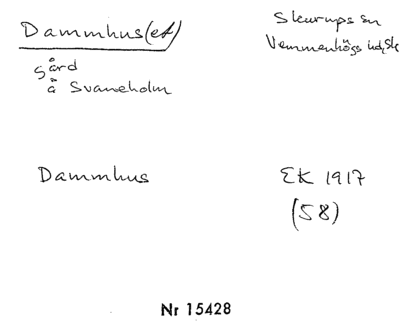 Dammhus(et)
Skurups sn
Vemmenhögs hd, Sk
gård
å Svaneholm
Dammhus
EK 1917
(58)
Nr 15428